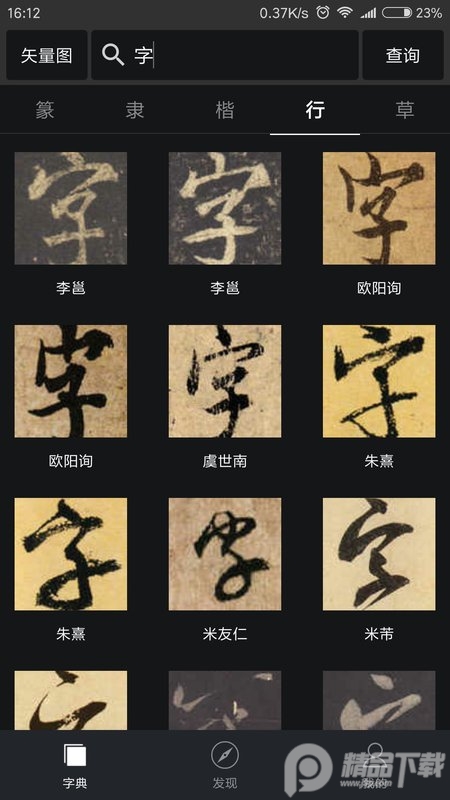 16:12 0.37K/s 23%
矢量图 字 查询
篆 隶 楷 行 草
字 字 字
李邕 李邕 欧阳询
字 字 字
欧阳询 虞世南 朱熹
字 字 字
朱熹 米友仁 米芾
字典 发现 我的
精品下载